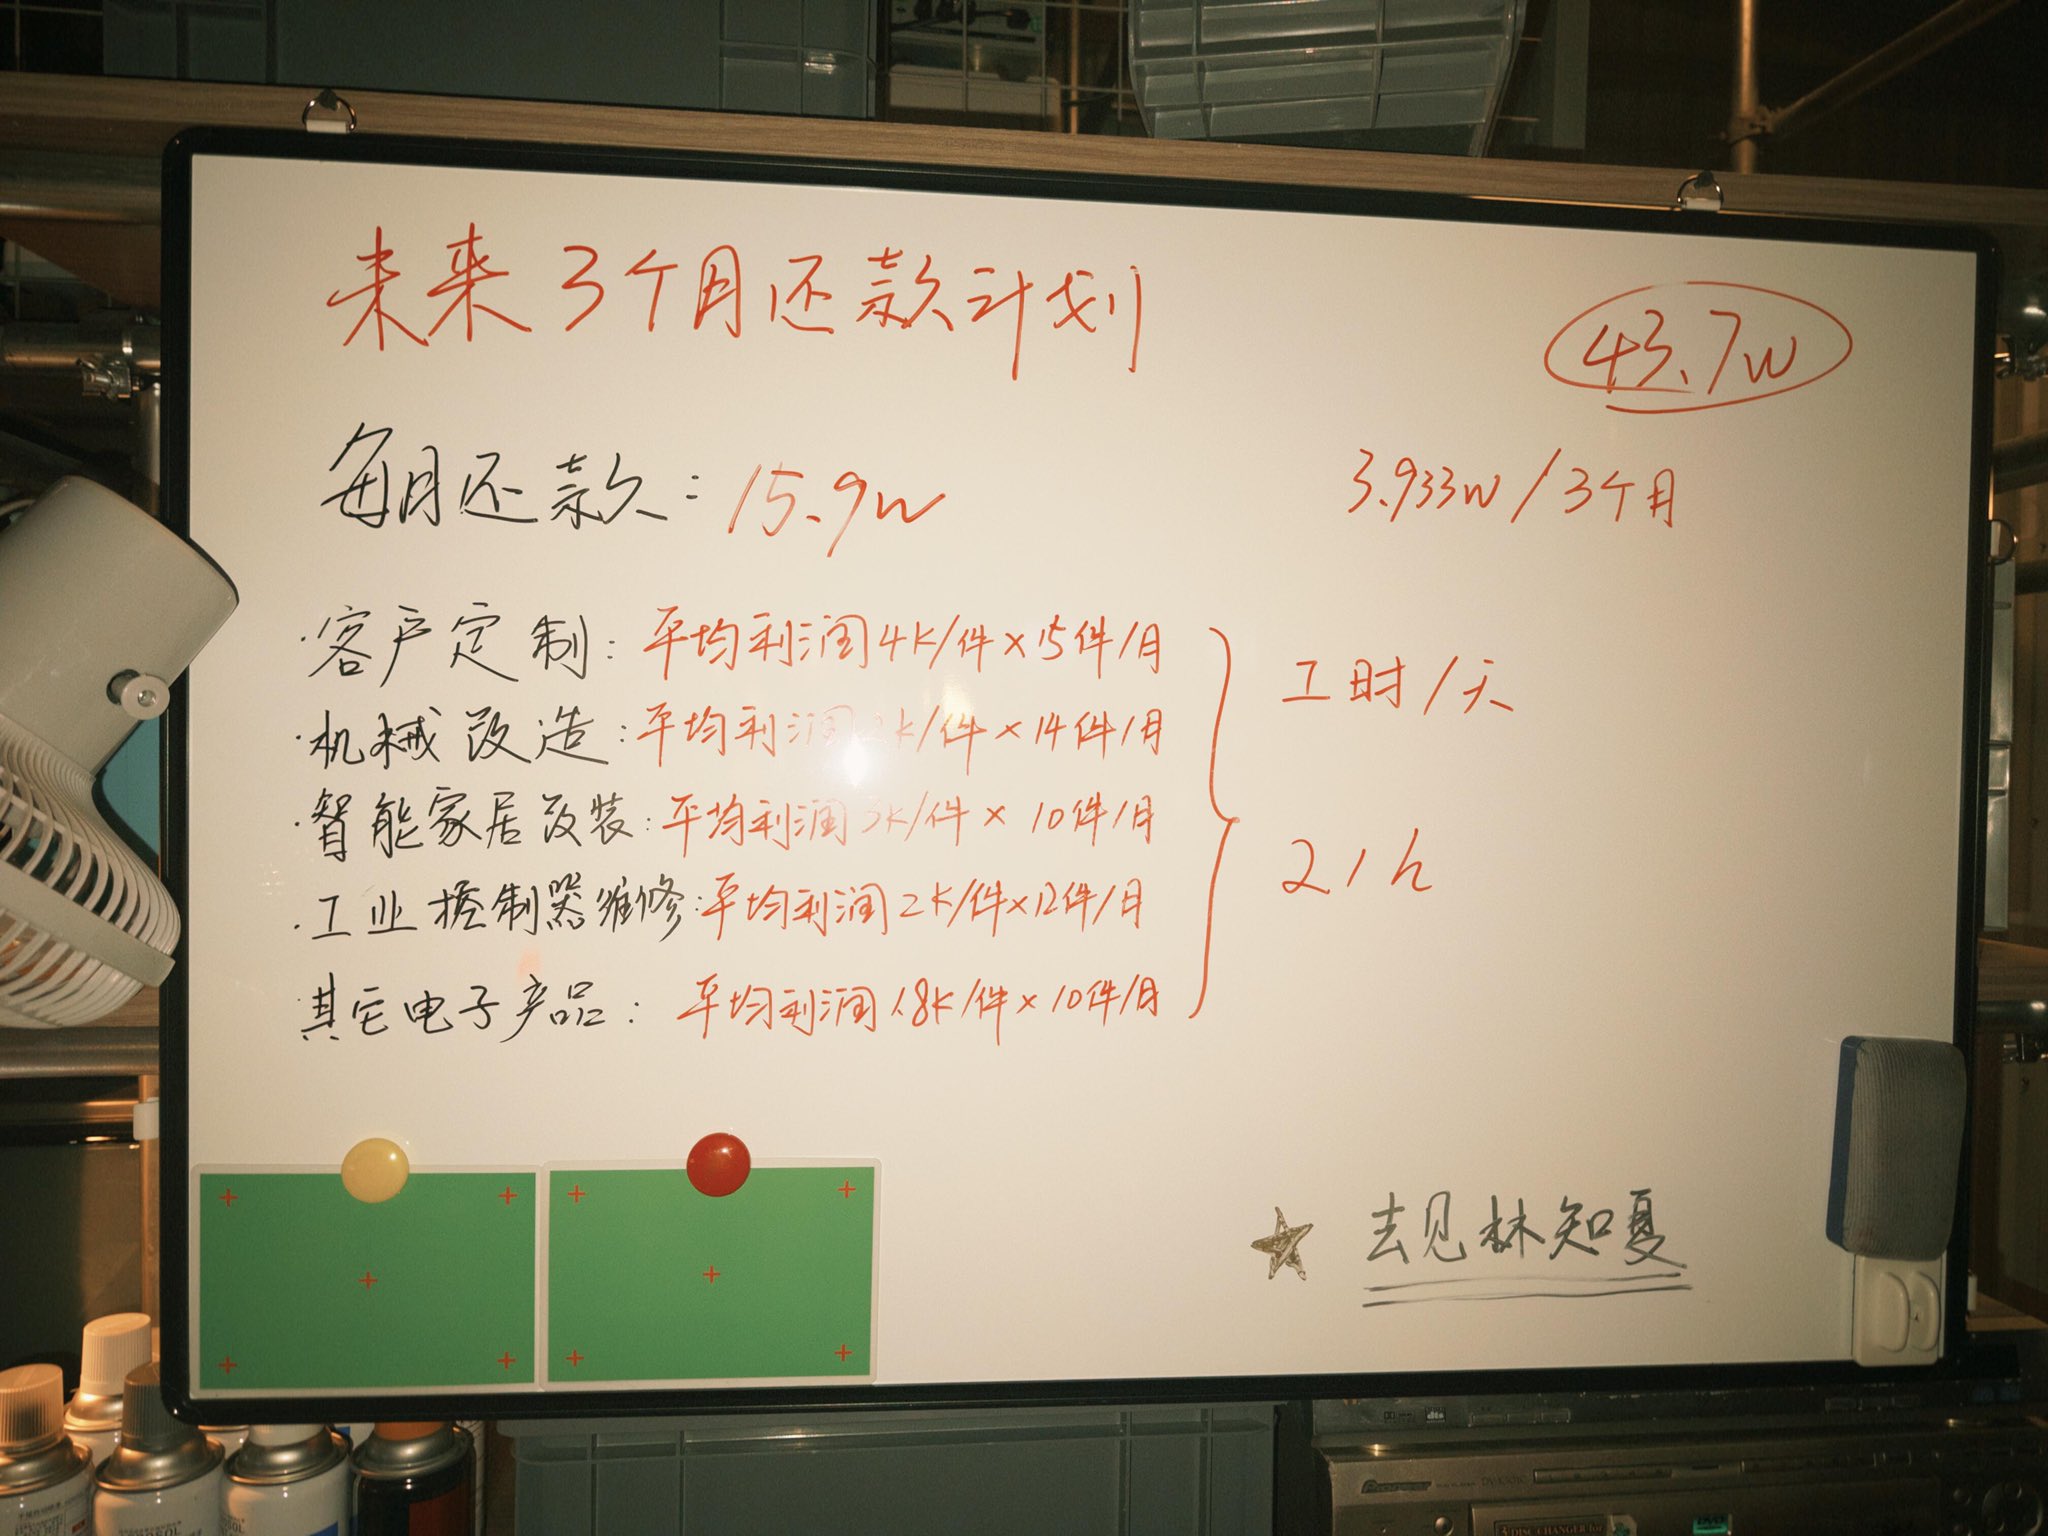 未来3个月还款计划
43.7w
每月还款:15.9w
3.933w/3个月
·客户定制:平均利润4K/件×15件/月
·机械改造:平均利润2K/件×14件/月
·智能家居改装:平均利润3K/件×10件/月
·工业控制器维修:平均利润2K/件×12件/月
其它电子产品:平均利润1.8K/件×10件/月
工时/天
21h
去见林知夏
Pioneer
dts